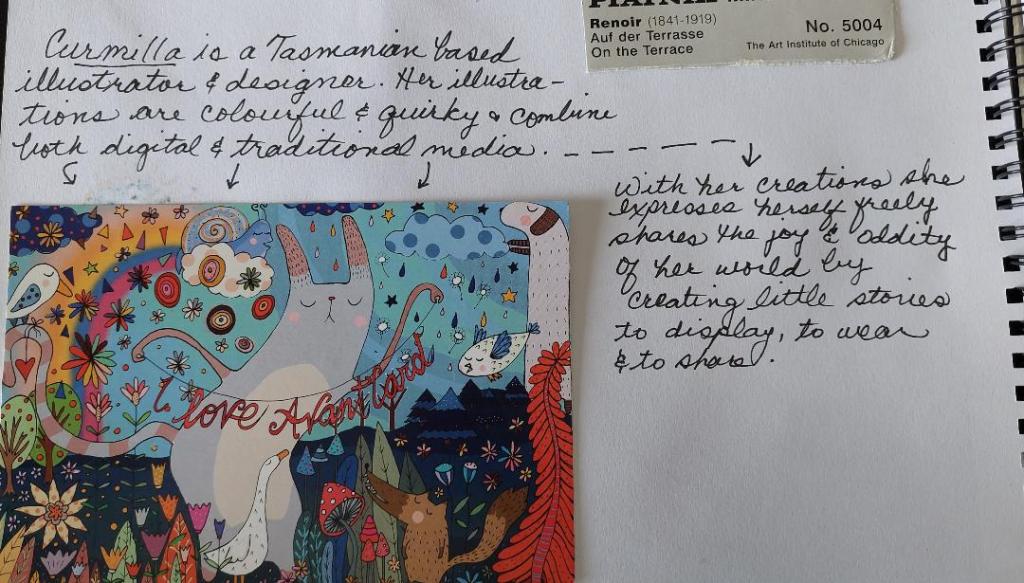 Curmilla is a Tasmanian based
illustrator & designer. Her illustra-
tions are colourful & quirky & combine
both digital & traditional media.
PIATNIK
Renoir (1841-1919)
Auf der Terrasse
On the Terrace
No. 5004
The Art Institute of Chicago
With her creations she
expresses herself freely
shares the joy & oddity
of her world by
creating little stories
to display, to wear
& to share.
I love Avant Card